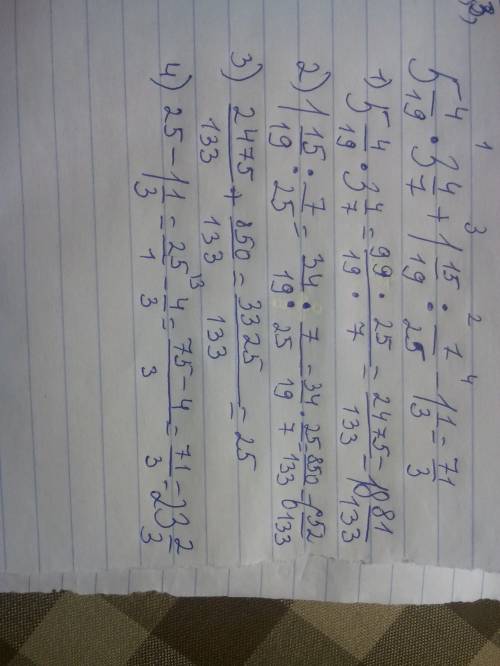 1 3 2 4
5 4/19 · 3 4/7 + 1 15/19 : 7/25 - 1 1/3 = 71/3
1) 5 4/19 · 3 4/7 = 99 · 25/19 · 7 = 2475/133 = 18 81/133
2) 1 15/19 : 7/25 = 34/19 : 7/25 = 34/19 · 25/7 = 850/133 = 6 52/133
3) 2475/133 + 850/133 = 3325/133 = 25
4) 25 - 1 1/3 = 25/1 \3 - 4/3 = 75 - 4/3 = 71/3 = 23 2/3